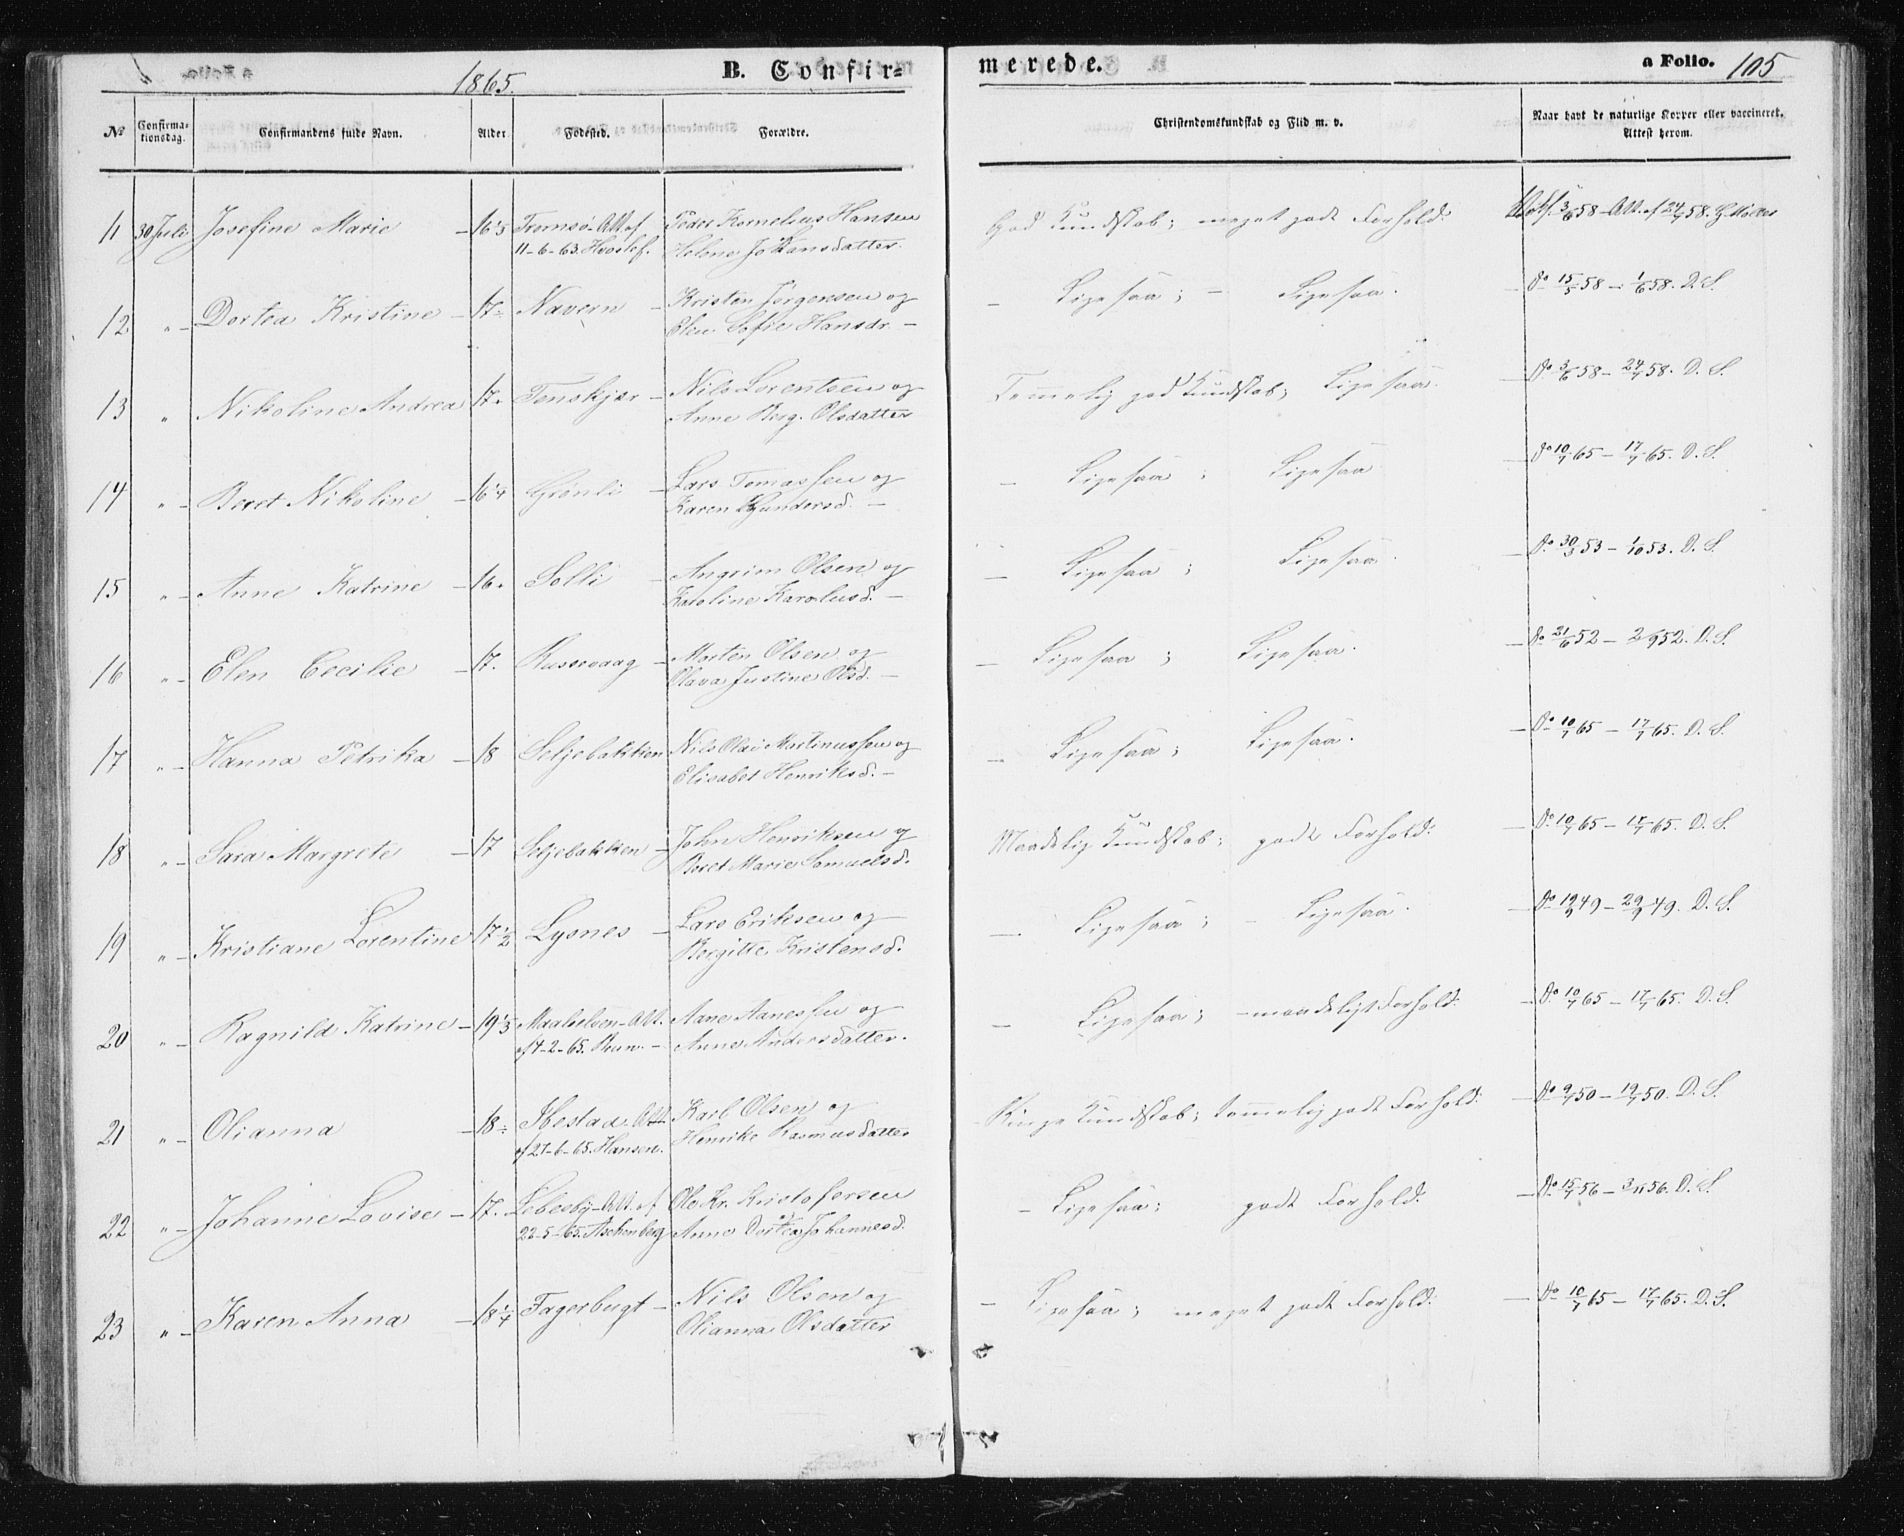 1865.
B. Confir=
merede.
a Folio. 105
No
Confirma-
tionsdag.
Confirmandens fulde Navn.
Alder
Fødested.
Forældre.
Christendomskundskab og Flid m. v.
Naar havt de naturlige Kopper eller vaccineret.
Attest herom.
11 30 Juli Josefine Marie – 16 Tromsø-Att. af Peder Kornelius Hansen God Kundskab; meget godt Forhold. 3/6 58 – Att. af 24/7 58.
11-6-63. Helene Johansdatter.
12 " – Dortea Kristine – 17 Navern – Kristen Jørgensen og – Ligesaa; – Ligesaa. – Do 15/5 58 – 1/6 58. D. S.
Elen Sofie Hansdr. –
13 " Nikoline Andrea 17. Tenskjær – Nils Lorentsen og Temmelig god Kundskab; Ligesaa. – Do 3/6 58 – 24/7 58. D. S.
Anne Berg. Olsdatter
14 " – Beret Nikoline – 16 1/4 Grønli – Lars Tomassen og – Ligesaa; Ligesaa – Do 10/7 65 – 17/7 65. D. S.
Karen Gundersd. –
15 " – Anne Katrine – 16. Solli – Angrim Olsen og – Ligesaa; Ligesaa. – Do 30/ 53 – 1/10 53. D. S.
Karoline Karolusd. –
16 " – Elen Cecilie – 17. Russevaag – Morten Olsen og – Ligesaa; Ligesaa. – Do 21/6 52 – 2/9 52. D. S.
Olava Justine Olsd. –
17 " – Hanna Petrika – 18 Seljebakken Nils Olai Martinussen og – Ligesaa; Ligesaa. – Do 10/7 65 – 17/7 65. D. S.
Elisabet Henriksd. –
18 " – Sara Margrete – 17 Seljebakken – John Henriksen og Maadelig Kundskab; godt Forhold. – Do 10/7 65 – 17/7 65. D. S.
Beret Marie Samuelsd.
19 " – Kristiane Lorentine 17 1/2 Lysnes – Lars Eriksen og – Ligesaa; – Ligesaa. – Do 19/9 49 – 29/9 49. D. S.
Bergitte Kristensd.
20 " – Ragnild Katrine – 19 1/3 Maalselven-Att. Aane Aanessen og – Ligesaa; – maadeligt Forhold. – Do 10/7 65 – 17/7 65. D. S.
af 4-2-65. – Anne Andersdatter.
21 " – Olianna – 18 Ibestad. Att. Karl Olsen og Ringe Kundskab; temmelig godt Forhold. – Do 9/7 50 – 19/7 50. D. S.
af 27-6-65. Hansen. Henrike Rasmusdatter
22 " – Johanne Lovise – 17. Lebesby-Att. af Ole Kr. Kristofersen – Ligesaa; godt Forhold. – Do 15/7 56 – 3/11 56. D. S.
22-5-65. Aschenberg Anne Dortea Johannesd.
23 " – Karen Anna – 18 1/4 Fagerbugt – Nils Olsen og – Ligesaa; meget godt Forhold. – Do 10/7 65 – 17/7 65. D. S.
Olianna Olsdatter